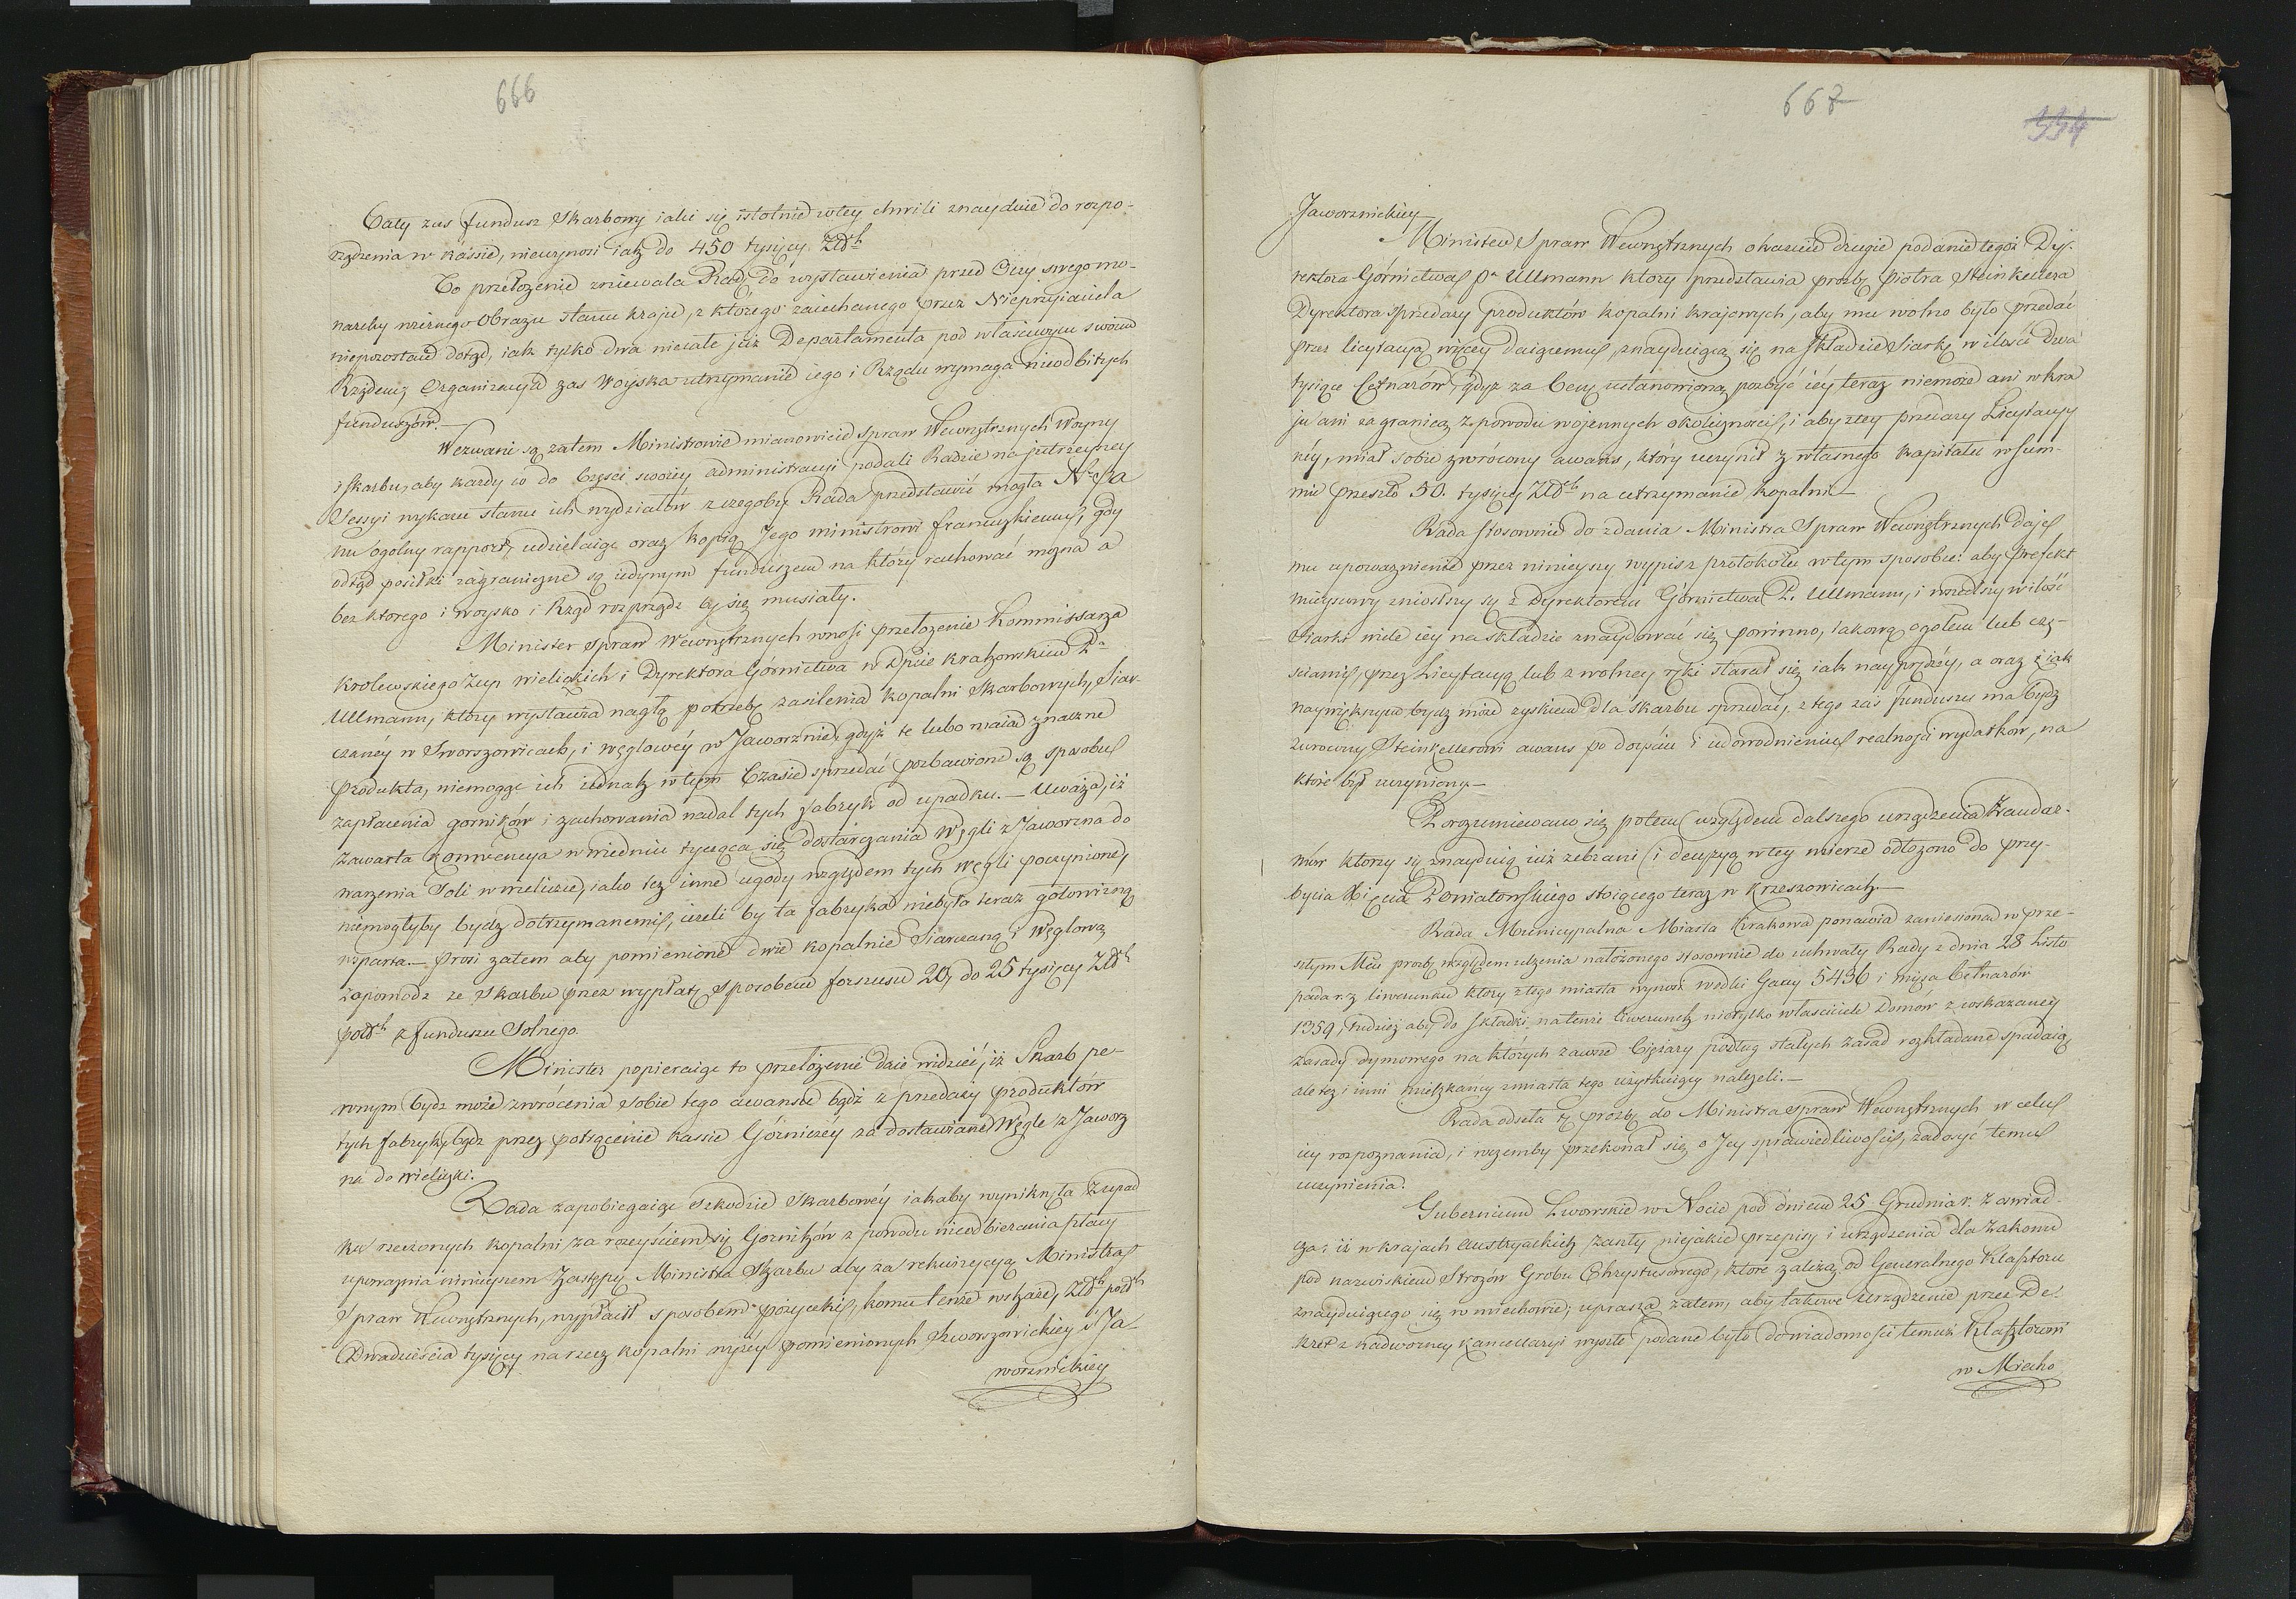 666
Cały zas fundusz Skarbowy iaki się istotnie wtey chwili znayduie do rozpo-
rządzenia w kassie, niewynosi iak do 450 tysięcy Złch
To przełożenie zniewala Radę do wystawienia przed Oczy swego mo-
narchy wiernego Obrazu stanu kraju, z którego zaiechanego przez Nieprzyiaciela
niepozostaie dotąd, iak tylko dwa niecałe już Departamenta pod właściwym swoim
Rządem; Organizacya zas Woyska utrzymanie iego i Rządu wymaga nieodbitych
funduszów.—
Wezwani są zatem Ministrowie mianowicie Spraw Wewnętrznych Woyny
i Skarbu, aby każdy co do Części swoiey administracyi podali Radzie na jutrzeyszey
Sessyi wykazu stanu ich wydziałów z czegoby Rada przedstawić mogła N. Pa
nu ogólny rapport, udzielaiąc oraz kopią Jego ministrowi francuzkiemu, gdy
odtąd posiłki zagraniczne są iedynym funduszem na który rachować można a
bez ktorego i woysko i Rząd rozprządz by się musiały.
Minister Spraw Wewnętrznych wnosi przełożenie Kommissarza
Krolewskiego Zup wielickich i Dyrektora Górnictwa w Dpcie Krakowskim Pa
Ullmann, ktory wystawia nagłą potrzebę zasilenia kopalni Skarbowych, Siar
czanéy w Swoszowicach, i węglowéy w Jaworznie, gdyż te lubo maią znaczne
produkta, niemogąc ich iednak w tym Czasie sprzedać pozbawione są sposobu
zapłacenia gorników i zachowania nadal tych fabryk od upadku.— Uważa, iż
Zawarta konwencya w Wiedniu tycząca się dostarczania Węgli z Jaworzna do
warzenia Soli w wieliczce, iako też inne ugody względem tych węgli poczynione,
niemogłyby bydz dotrzymanemi, ieżeli by ta fabryka niebyła teraz gotowizną
wsparta.— Prosi zatem aby pomienione dwie kopalnie Siarczaną i Węglową
zapomodz ze Skarbu przez wypłatę sposobem forszusu 20, do 25 tysięcy Złch
polch z funduszu Solnego.
Minister popieraiąc to przełożenie daie widzieć, iż Skarb pe-
wnym bydz może zwrócenia Sobie tego awansu bądź z przedaży produktów
tych fabryk, bądz przez potrącenie kassie Górniczéy za dostawiane Węgle z Jaworz
na do Wieliczki.
Rada zapobiegaiąc szkodzie Skarbowéy iakaby wyniknęła z upad
ku rzeczonych kopalni za rozeyściem się Gorników z powodu nieodbierania płacy
upoważnia niniejszem Zastępcę Ministra Skarbu aby za rekwizycyą Ministra
Spraw Wewnętrznych, wypłacił sposobem pożyczki, komu tenże wskaże, Złch polch
Dwadzieścia tysięcy na rzecz kopalni wyżey pomienionych Swoszowickiey i Ja-
worznickiey
667
334
Jaworznickiey
Minister Spraw Wewnętrznych okazuie drugie podanie tegoż Dy-
rektora Górnictwa Pa Ullmann ktory przedstawia prosbę Piotra Steinkellera
Dyrektora Sprzedaży produktów kopalni krajowych, aby mu wolno było przedać
przez licytacyą więcey daiącemu, znayduiącą się na Składzie Siarkę w ilości Dwa
tysiące Cetnarów, gdyz za Cenę ustanowioną pozbyć iéy teraz niemoże ani w kra
ju ani za granicą z powodu wojennych okoliczności, i aby ztey przedaży Licytacyy
néy, miał sobie zwrócony awans, ktory uczynił z własnego kapitału w Sum-
mie przeszło 50. tysięcy Złch na utrzymanie kopalni.—
Rada stosownie do zdania Ministra Spraw Wewnętrznych daje
mu upoważnienie przez ninieyszy wypis z protokołu w tym sposobie: aby prefekt
mieyscowy zniosłszy się z Dyrektorem Górnictwa P. Ullmann, i wszedłszy w ilość
Siarki wiele iey na składzie znaydować się powinno, takową ogołem lub czę-
sciami, przez Licytacyą lub z wolney ręki starał się iak nayprędzéy, a oraz z iak
naywiększym bydz może zyskiem dla Skarbu sprzedać, z tego zaś funduszu ma bydz
zwrocony Steinkellerowi awans po doyściu i udowodnieniu realności wydatków, na
które był uczyniony.—
Porozumiewano się potem względem dalszego urządzenia Żandar-
mów ktorzy się znayduią iuż zebrani i decyzyą w tey mierze odłożono do przy-
bycia Xięcia Poniatowskiego stoiącego teraz w Krzeszowicach.—
Rada Municypalna Miasta Krakowa ponawia zaniesioną w prze-
szłym Mcu prosbę względem ulżenia nałożonego stosownie do uchwały Rady z dnia 28 Listo
pada r. z. liwerunku ktory z tego miasta wynosi wodki Garcy 5436 i mięsa Cetnarów
1359, tudzież aby do Składki na tenże liwerunek nietylko właściciele Domów z wskazaney
zasady dymowego na których zawsze Ciężary podług stałych zasad rozkładane spadaią
ale też i inni mieszkańcy z miasta tego użytkuiący należeli.—
Rada odseła tę prozbę do Ministra Spraw Wewnętrznych w celu
iey rozpoznania, i wrzemby przekonał się o Jey sprawiedliwości, zadosyć temu
uczynienia.
Gubernium Lwowskie w Nocie pod dniem 25 Grudnia r. z. oswiad-
cza: iż w krajach Austryackich zaszły niejakie przepisy i urządzenia dla Zakonu
pod nazwiskiem Strozów Grobu Chrystusowego, które zależą od Generalnego Klasztoru
znayduiącego się w Miechowie; uprasza zatem, aby takowe Urządzenie przez De-
kret z Nadworney Kancellaryi wyszłe podane było do wiadomości temuż Klasztorowi
w Miecho